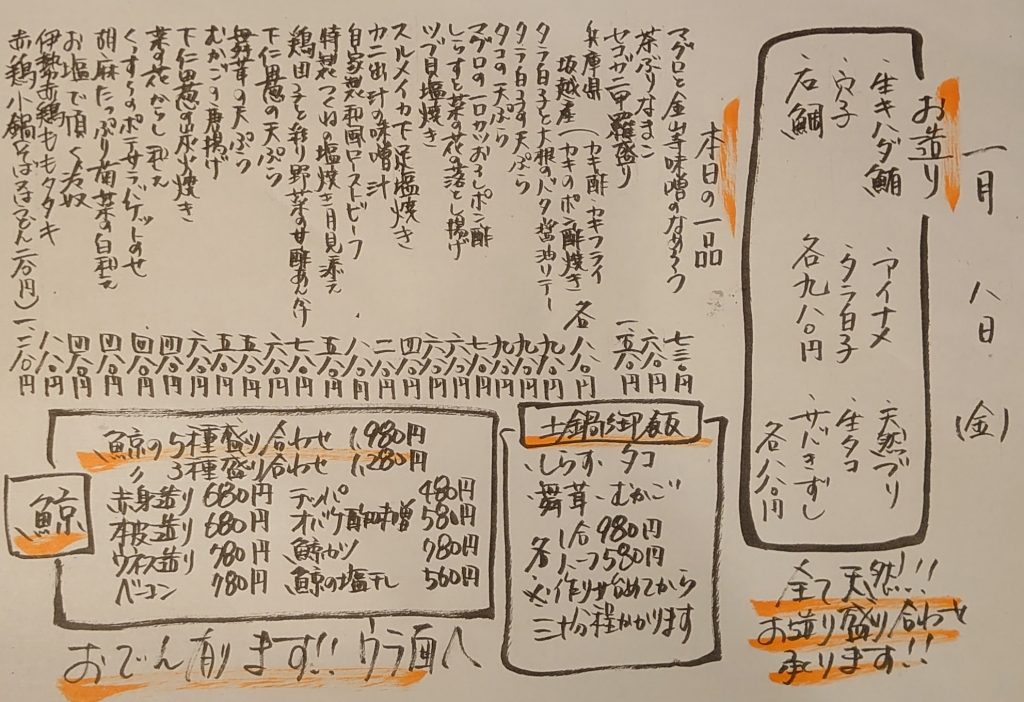 一月 八日 (金)
お造り
・生キハダ鮪 ・アイナメ ・天然ブリ
・穴子 ・タラ白子 ・生タコ
・石鯛 各九八〇円 ・サバきずし
各八八〇円
全て天然!!
お造り盛り合わせ
承ります!!
本日の一品
マグロと金山寺味噌のなめろう 七三〇円
茶ぶりなまこ 六八〇円
セコガニ甲羅盛り 一、五八〇円
兵庫県 坂越産 (カキ酢・カキフライ カキのポン酢焼き) 各八八〇円
タラ白子と大根のバタ醤油ソテー 九八〇円
タラ白子天ぷら 九八〇円
タコの天ぷら 九八〇円
マグロの一口カツおろしポン酢 七八〇円
しらすと菜の花の落とし揚げ 六八〇円
ツブ貝塩焼き 六八〇円
スルメイカ下足塩焼き 四八〇円
カニ出汁の味噌汁 二八〇円
自家製和風ローストビーフ 八八〇円
特製つくねの塩焼き 月見添え 五八〇円
鶏団子と彩り野菜の甘酢あんかけ 七八〇円
下仁田葱の天ぷら 六八〇円
舞茸の天ぷら 五八〇円
むかごの唐揚げ 五八〇円
下仁田葱の炭火焼き 四八〇円
菜の花からし和え 四八〇円
くんすうのポテサラバゲットのせ 四八〇円
胡麻たっぷり菊菜の白和え 四八〇円
お塩で頂く冷奴 四八〇円
伊勢赤鶏ももタタキ 八八〇円
赤鶏小鍋(そば又はうどん二八〇円) 一、二八〇円
土鍋御飯
・しらす・タコ
・舞茸・むかご
各 1合 980円
1人一つ 580円
※作り始めてから
三十分程かかります
鯨
鯨の5種盛り合わせ 1,980円
〃 3種盛り合わせ 1,280円
赤身造り 680円 テッパ 480円
本皮造り 680円 オバケ酢味噌 580円
ウネス造り 780円 鯨カツ 780円
ベーコン 780円 鯨の塩干し 560円
おでん有ります!! ウラ面へ